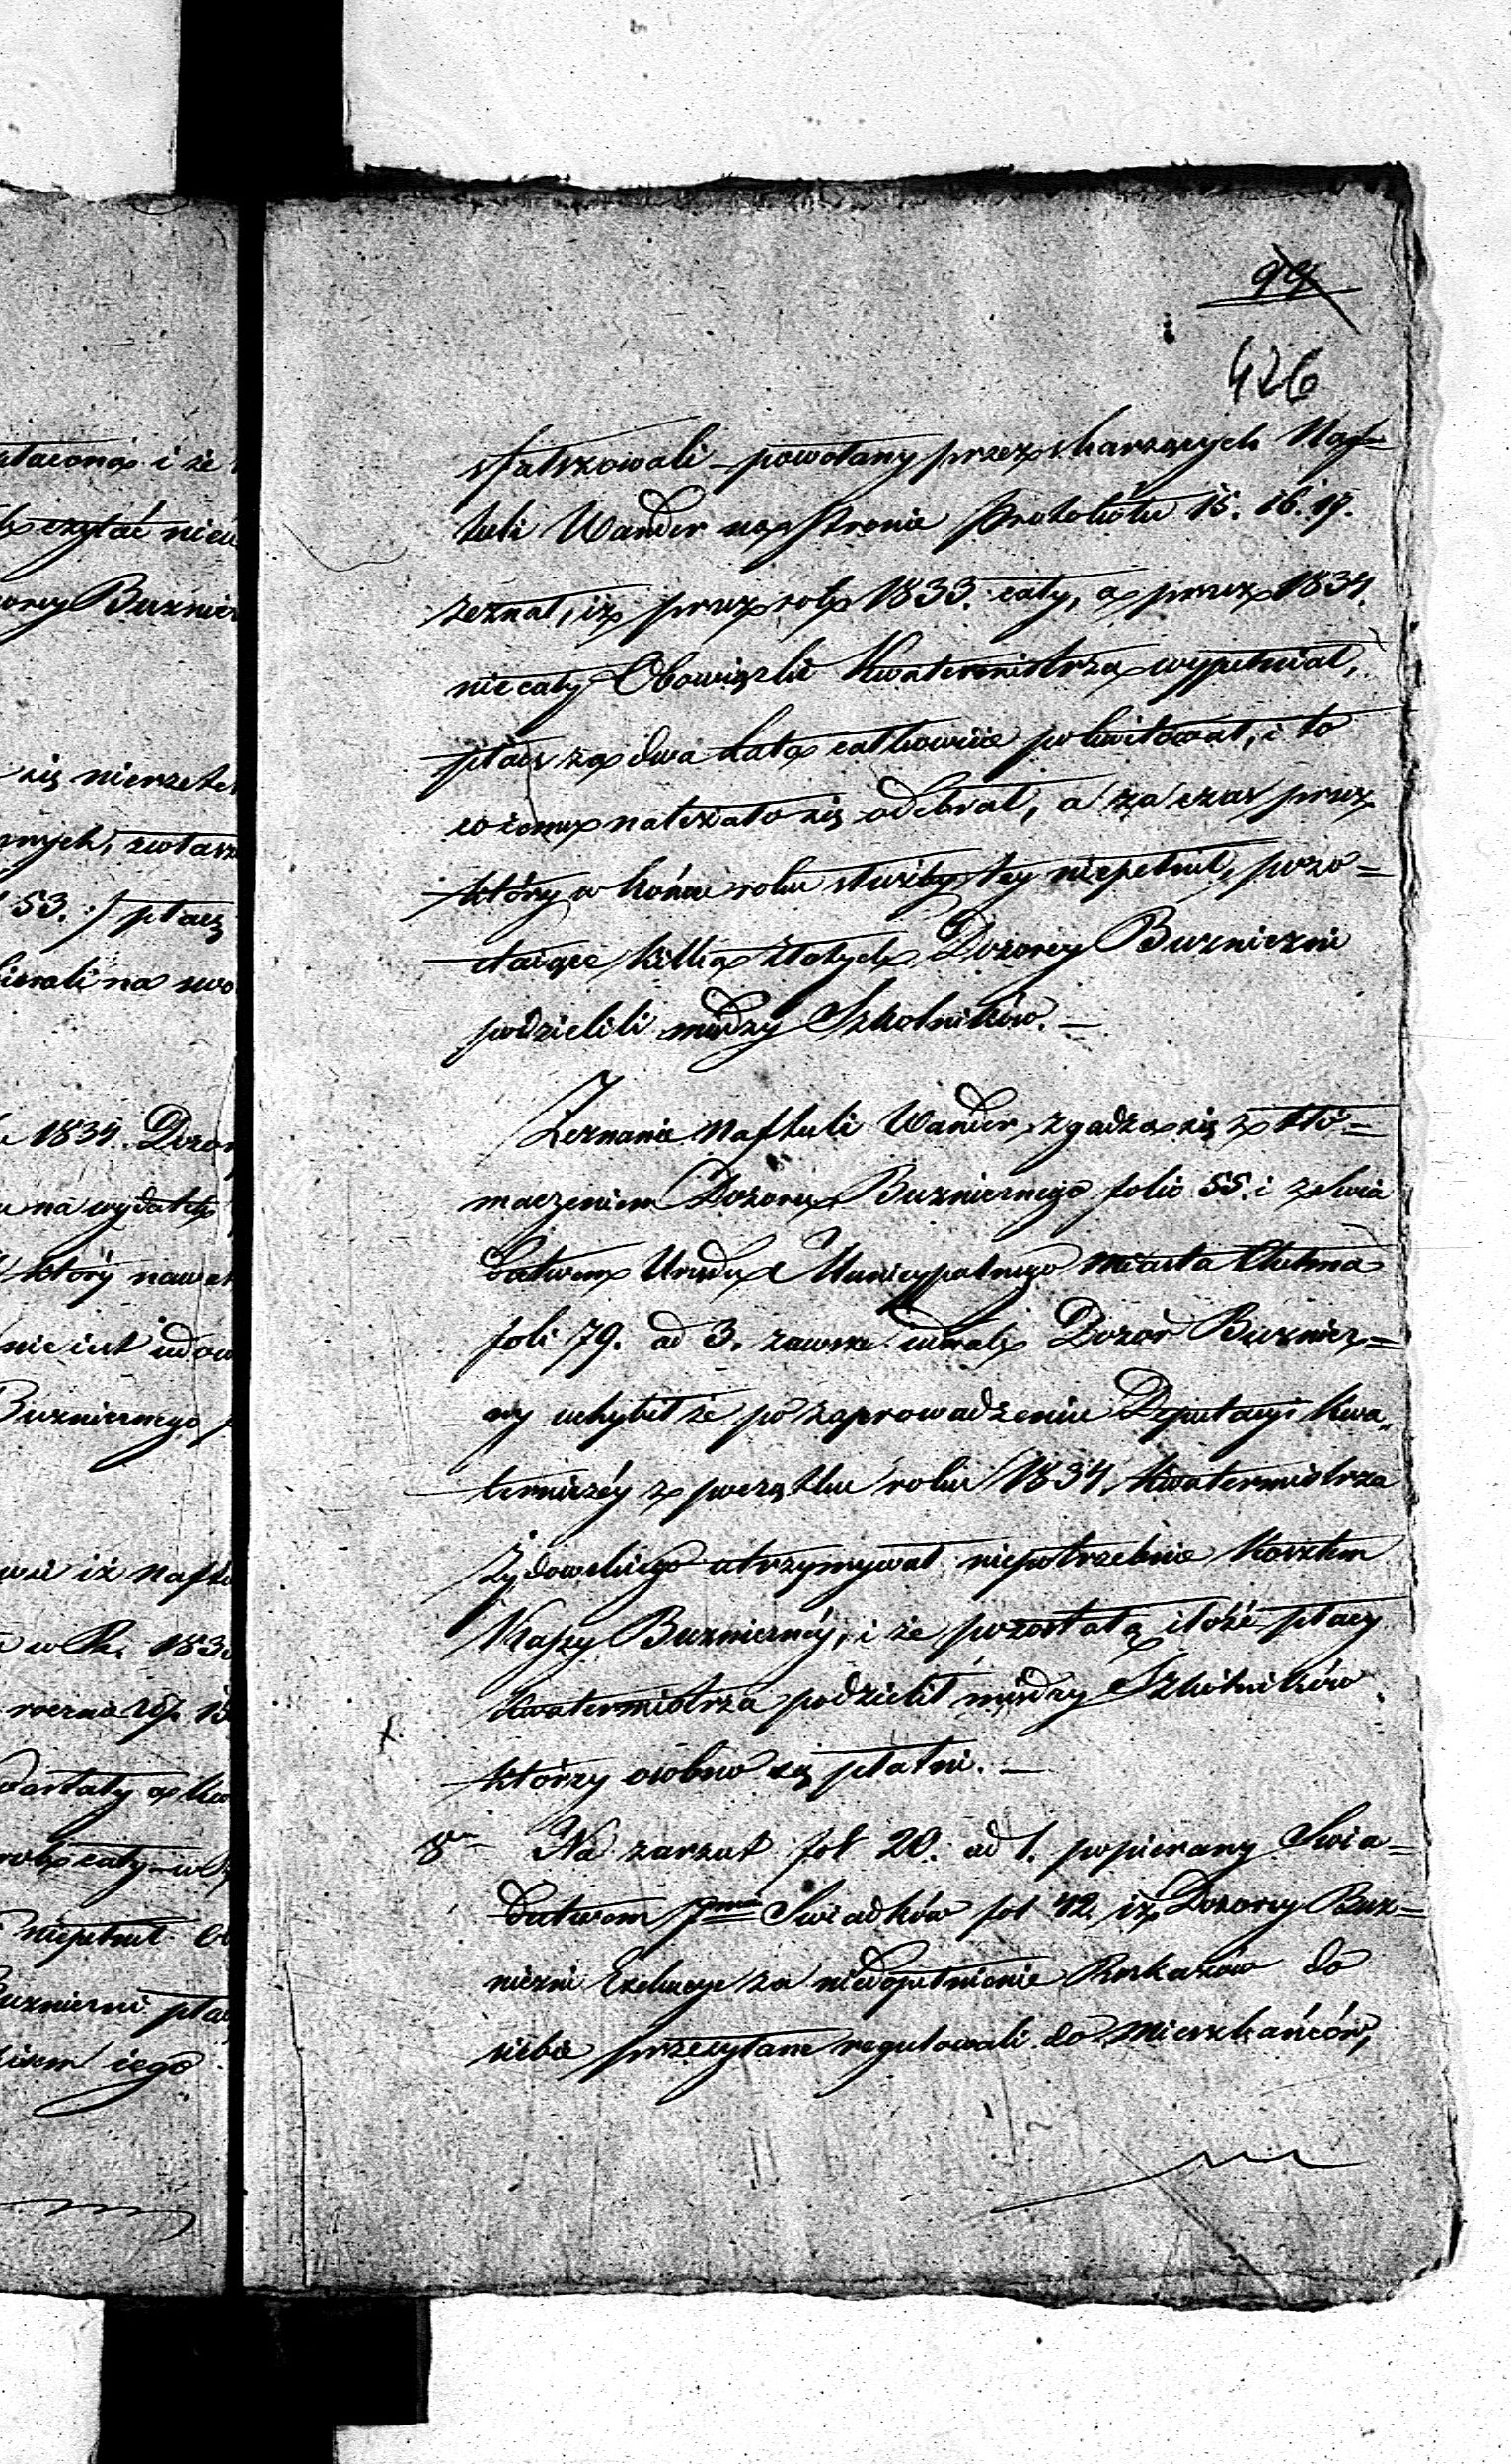 99
426
sfałszowali – powołany przez skarzących Naf=
tuli Wander na stronie Protokółu 15. 16. 17.
zeznał, iż przez rok 1833. cały, a przez 1834.
niecały Obowiązki Kwatermistrza wypełniał,
płacę za dwa lata całkowicie pokwitował, i to
co iemu należało się odebrał, a za czas przez
który w końcu roku służby tey niepełnił, pozo=
staiące kilka Złotych Dozorcy Bużniczni
podzielili między Szkolników. –
Zeznanie Naftuli Wander zgadza się z tłó=
maczeniem Dozoru Bużnicznego folio 55. i z Świa
dectwem Urzędu Municypalnego Miasta Chełma
foli 79. ad 3. zawsze iednak Dozór Bużnicz=
ny uchybił że po zaprowadzeniu Deputacyi Kwa„
terniczéy z początku roku 1834. Kwatermistrza
Żydowskiego utrzymywał niepotrzebnie kosztem
Kassy Bużnicznéy, i że pozostałą ilość płacy
Kwatermistrza podzielił między Szkolników
którzy osobno są płatni. –
8° Na zarzut fol 20. ad 1. popierany Świa=
dectwem 7miu Świadków fol 42. iż Dozorcy Buż=
niczni Exekucye za niedopełnienie Roskazów do
siebie przesyłane regulowali do Mieszkańców,
płacona i że
czytać nieu
Bużnicz
się nierzetel
53. :/ płacę
bierali na swo
1834. Dozor
na wydatek
który nawet
nie iest udow
Bużnicznego
iż Naftu
w R. 183
rok cały
niepełnił
Bużniczni płac
iego